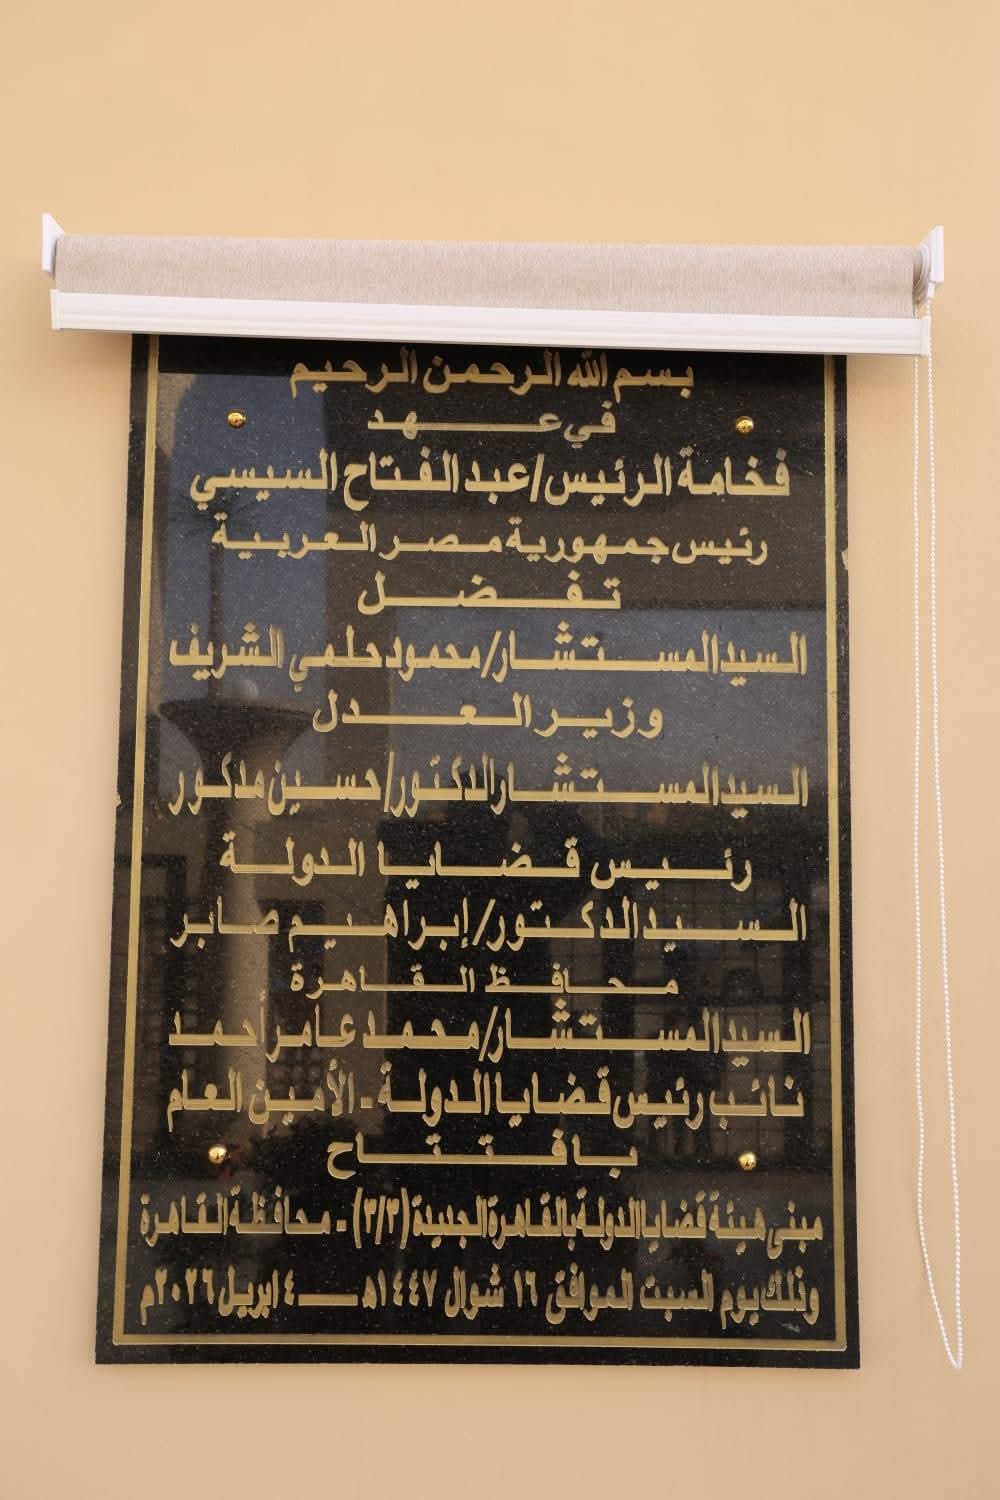 بسم الله الرحمن الرحيم
في عهد
فخامة الرئيس/عبد الفتاح السيسي
رئيس جمهورية مصر العربية
تفضل
السيد المستشار/محمود حلمي الشريف
وزير العدل
السيد المستشار الدكتور/حسين مدكور
رئيس قضايا الدولة
السيد الدكتور/إبراهيم صابر
محافظ القاهرة
السيد المستشار/محمد عامر أحمد
نائب رئيس قضايا الدولة - الأمين العام
بافتتاح
مبنى هيئة قضايا الدولة بالقاهرة الجديدة (٣/٣) - محافظة القاهرة
وذلك يوم السبت الموافق ١٦ شوال ١٤٤٧هـ ٤ ابريل ٢٠٢٦م